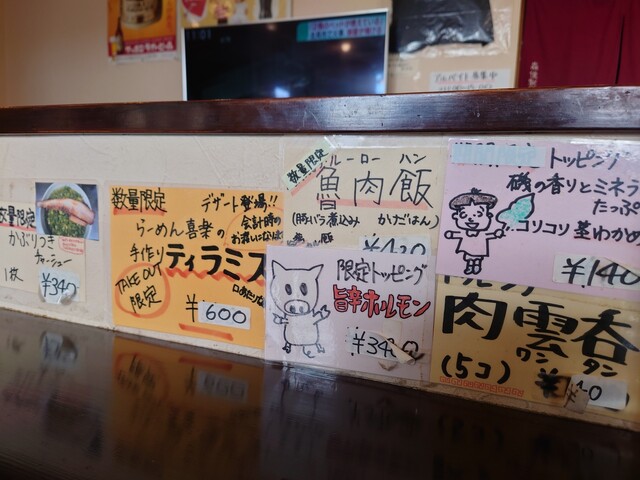 11:01
アルバイト募集中
数量限定
かぶりつき
チャーシュー
1枚
¥340
数量限定
デザート登場!!
会計時の
お渡しになります
らーめん喜楽の
手作り
ティラミス
TAKE OUT
限定
¥600
数量限定
ルーローハン
魯肉飯
(豚バラ煮込み かけごはん)
¥420
限定トッピング
旨辛ホルモン
トッピング
磯の香りとミネラ
たっぷ
コリコリ 茎わかめ
¥140
肉雲呑
ワンタン
(5コ)